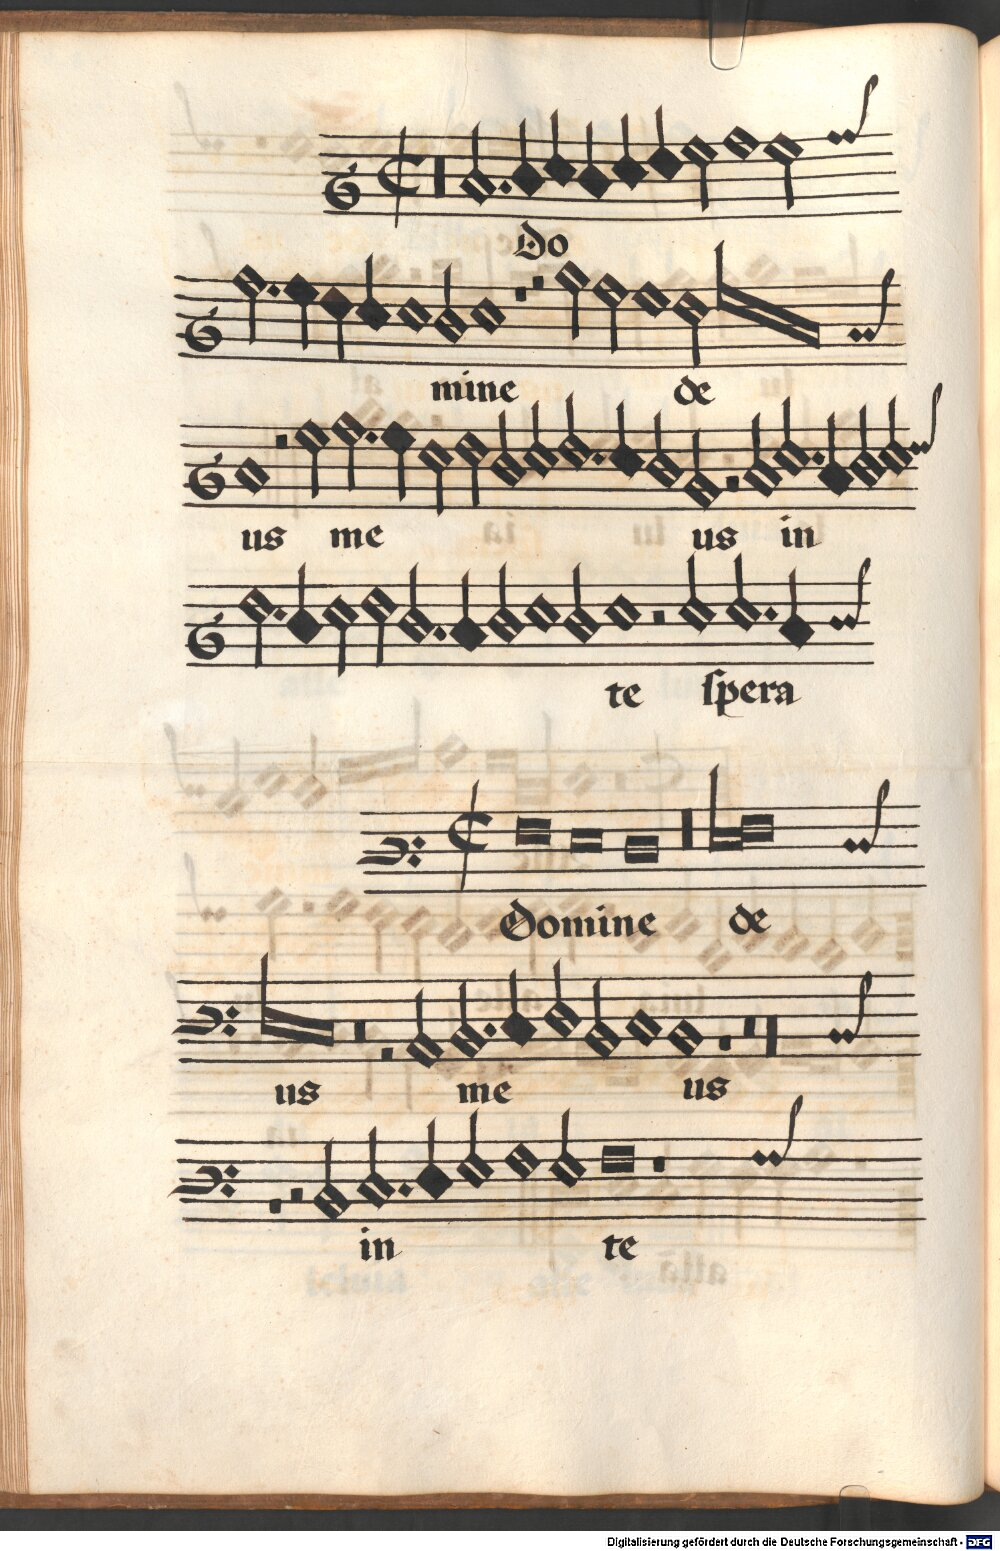 Do
mine de
us me us in
te spera
Domine de
us me us
in te
Digitalisierung gefördert durch die Deutsche Forschungsgemeinschaft - DFG